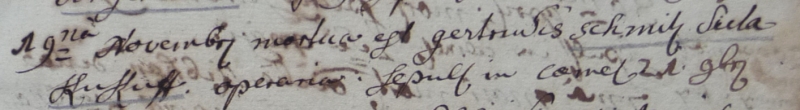 19na Novembr mortua est gertrudis schmitz dicta
operaria. sepult in cœmet 21 9br